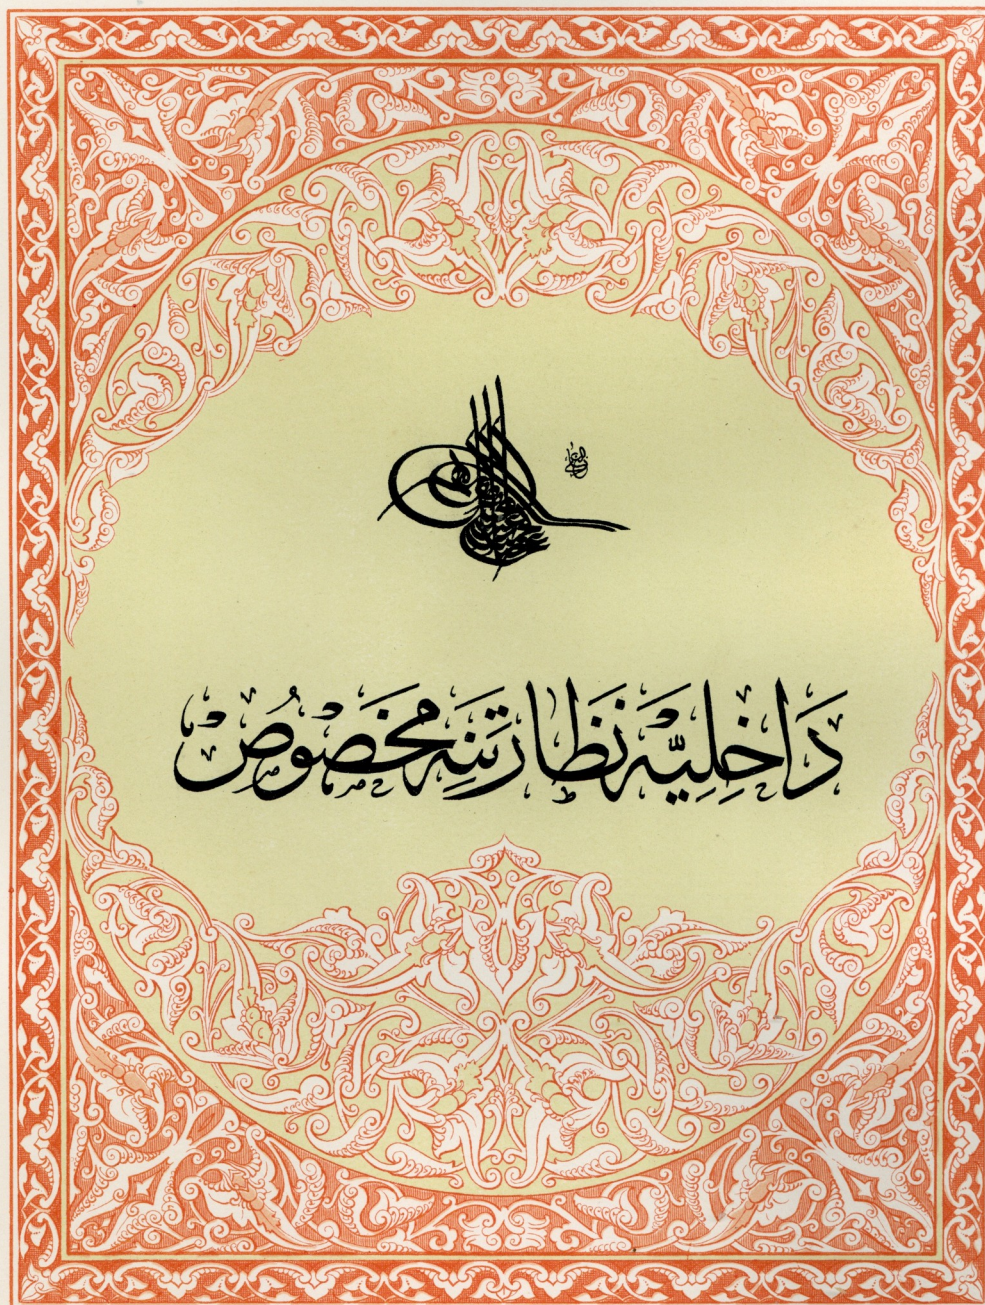 دَاخِلِيَّه نَظَارَتِنِه مَخْصُوصْ